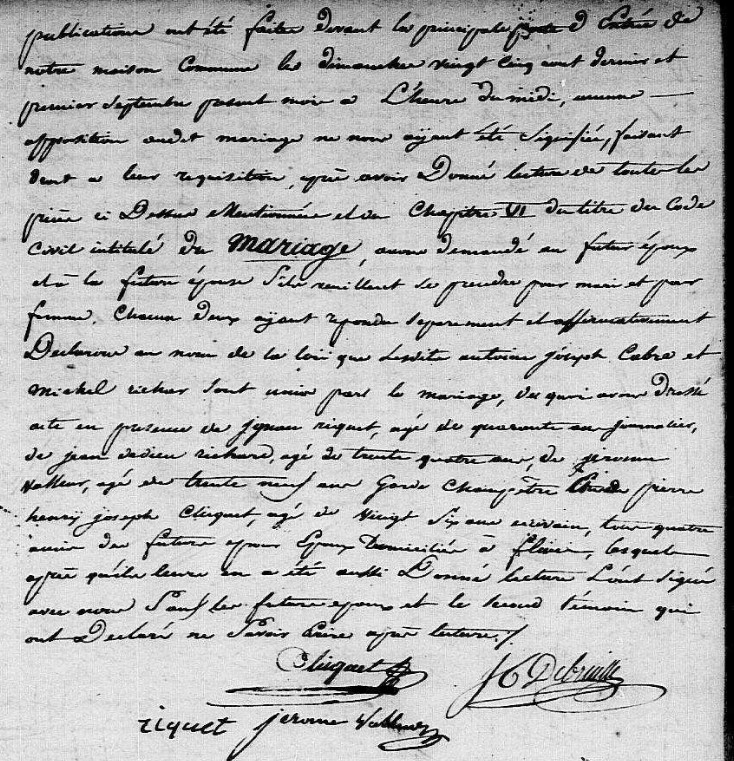 publications ont été faites devant la principale porte d'Entrée de
notre maison Commune les dimanches vingt Cinq aout dernier et
premier septembre présent mois a L'heure du midi, aucune —
opposition audit mariage ne nous ayant été Signifiée, faisant
droit a leur requisition, après avoir Donné lecture de toutes les
pièces ci Dessus Mentionnées et du Chapitre VI du titre du Code
Civil intitulé du Mariage, avons demandé au futur époux
et à la future épouse S'ils veuillent se prendre pour mari et pour
femme. Chacun deux ayant repondu separement et affirmativement
Declarons au nom de la loi que Lesdits antoine joseph Cabre et
Michel richar Sont unis par le mariage, de quoi avons Dressé
acte en presence de riquet, agé de quarante ans journalier,
de jean dedieu richard, agé de trente quatre ans, de jerome
Valleur, agé de trente neuf ans Garde Champêtre pierre
henry joseph Cliquet, agé de Vingt Six ans ecrivain, tous quatre
amis des futurs epoux Domiciliés à, lesquels
après qu'ils leurs en a été aussi Donné lecture L'ont Signés
avec nous Sauf les futurs epoux et le second témoin qui
ont Declaré ne Savoir Ecrire après lecture. /
Cliquet
riquet jerome Valleur